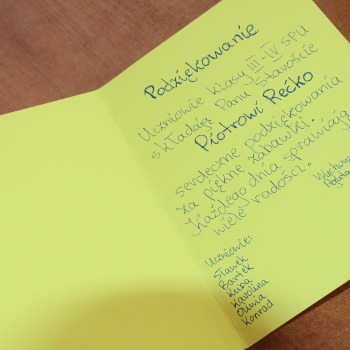 Podziękowanie
Uczniowie klasy III-IV SPU
składają Panu Staroście
Piotrowi Rećko
serdeczne podziękowania
za piękne zabawki.
Każdego dnia sprawiają
wiele radości.
Uczniowie:
Sławek
Bartek
Kuba
Karolina
Oliwia
Konrad